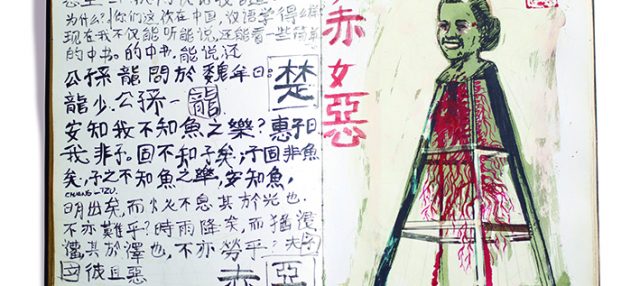 为什么?你们这次在中国,汉语学得怎么样
现在我不仅能听能说,还能看一些简单
的中书。的中书,能说,还
公孫龍問於魏牟曰:
龍少,公孫一 龍 楚
安知我不知魚之樂?惠子曰
我非子。固不知子矣;子固非魚
矣,子之不知魚之樂,安知魚,
CHUANG-TZU.
明出矣,而火不息其於光也.
不亦難乎?時雨降矣,而猶浸
灌其於澤也,不亦勞乎?夫
彼且惡
赤 亞
赤
女惡